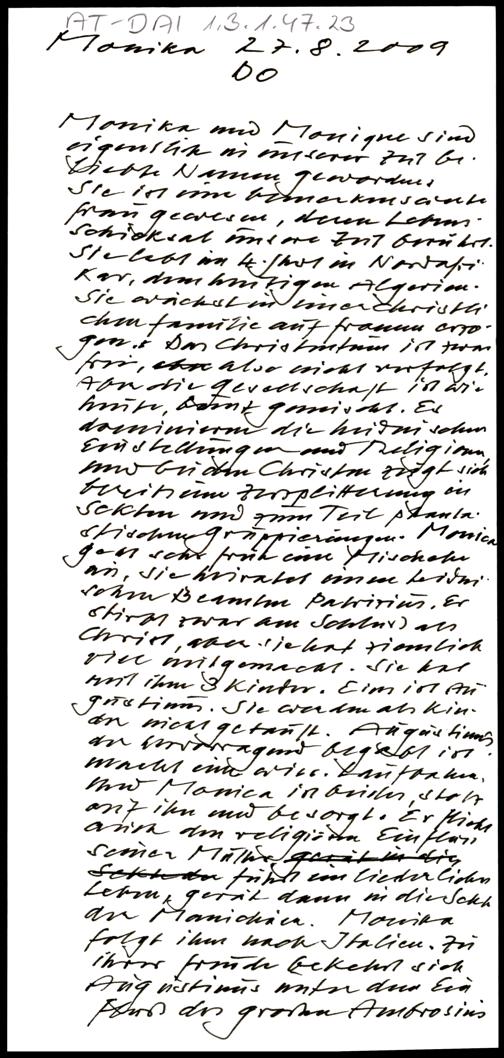 AT-DAI 1.3.1.47.23
Monika 27.8.2009
DO
Monika und Monique sind
eigentlich in unserer Zeit be-
liebte Namen geworden.
Sie ist eine bemerkenswerte
Frau gewesen, deren Lebens-
schicksal unsere Zeit berührt.
Sie lebt im 4. Jhdt in Nordafri-
kar, dem heutigen Algerien.
Sie wächst in einer christli-
chen Familie auf fromm erzo-
gen. Das Christentum ist zwar
frei, also nicht verfolgt.
Aber die Gesellschaft ist wie
heute, bunt gemischt. Es
dominieren die heidnischen
Einstellungen und Religionen
und bei den Christen zeigt sich
bereits eine Zersplitterung in
Sekten und zum Teil phanta-
stischen Gruppierungen. Monica
geht sehr früh eine Mischehe
ein, sie heiratet einen heidni-
schen Beamten Patricius. Er
stirbt zwar am Schluss als
Christ, aber sie hat ziemlich
viel mitgemacht. Sie hat
mit ihm 3 Kinder. Eins ist Au-
gustinus. Sie werden als Kin-
der nicht getauft. Augustinus
der hervorragend begabt ist
macht eine wiss. Laufbahn.
Und Monica ist beides, stolz
auf ihn und besorgt. Er flieht
auch den religiösen Einfluss
seiner Mutter gerät in die
Sekte der führt ein liederliches
Leben, gerät dann in die Sekte
der Manichäer. Monika
folgt ihm nach Italien. Zu
ihrer Freude bekehrt sich
Augustinus unter dem Ein
fluss des großen Ambrosius